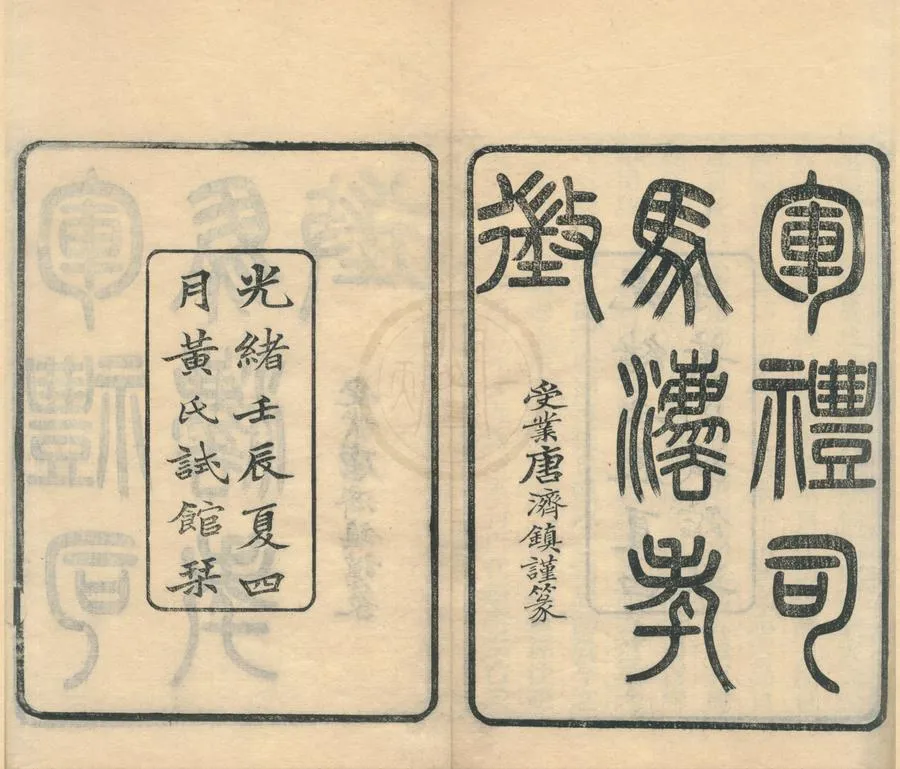 軍禮司
馬灋考
徵
受業唐濟鎮謹篆
光緒壬辰夏四
月黃氏試館栞